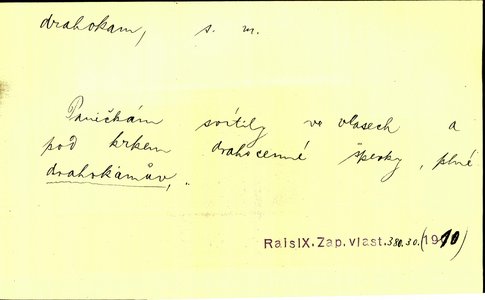 drahokam, s. m.
Paničkám svítily ve vlasech a
pod krkem drahocenné šperky, plné
drahokamův,"
Rais IX. Zap. vlast. 380.30. (1910)